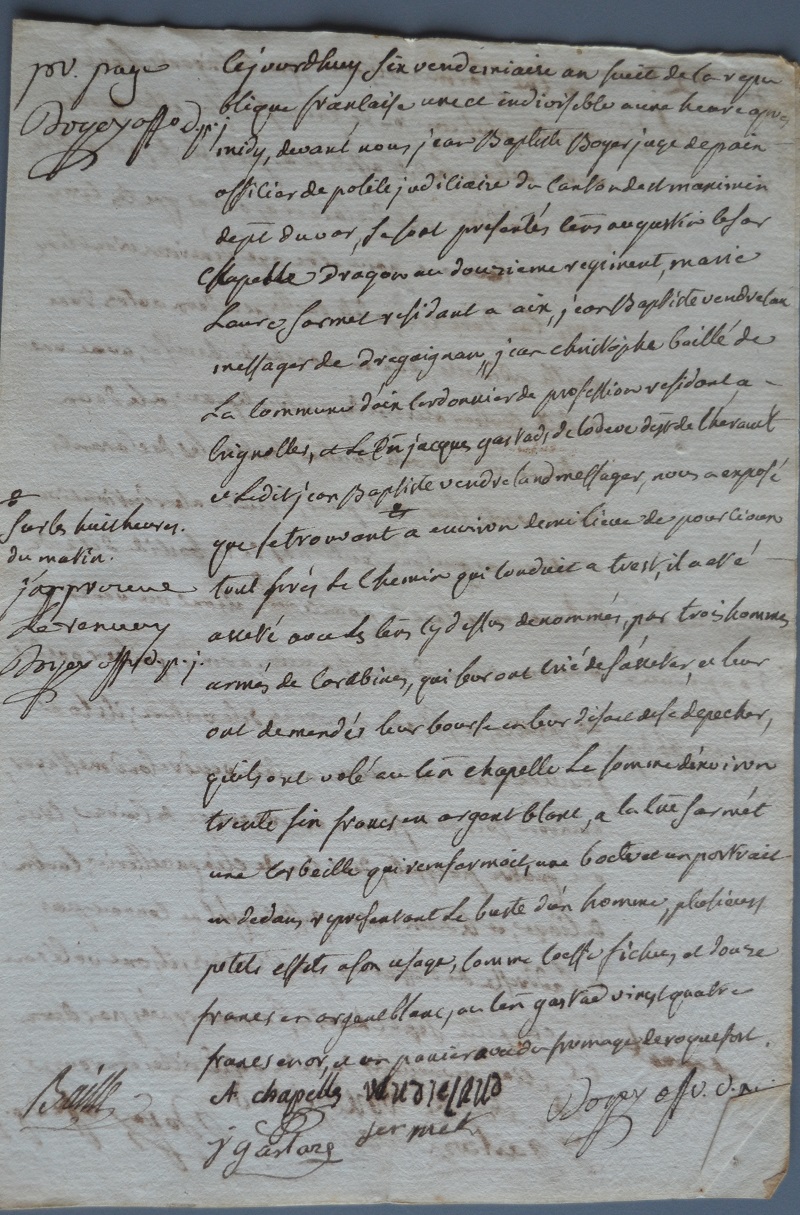 pr. page
Boyer off. d. p. j.
Cejourdhuy six vendemiaire an huit de la repu
blique francaise une et indivisible a une heure apres
midy, devant nous jean Baptiste Boyer juge de paix
officier de police judiciaire du canton de st maximin
dept. du var, se sont presentés les cens augustin Cesar
Chapelle dragon au douzieme regiment, marie
Laure sermet residant a aix, jean Baptiste vendreland
messager de draguignan, jean christophe baillé de
La Commune d'aix cordonnier de profession residant a
brignolles, et Le Cen jacques gastard, de lodeve dept. de lherault
et Ledit jean Baptiste vendreland messager, nous a exposé
que se trouvant a environ demi lieue de pourcioux
tout prés Le Chemin qui conduit a trest, il a eté
arreté avec Les Cens cy dessus denommés, par trois hommes
armés de Carabines, qui leur ont crié de s'arreter, et leur
ont demandés leur bourse en leur disant de se depecher,
qu'ils ont volé au Cen chapelle La somme d'environ
trente six francs en argent blanc, a la Cne sarmét
une Corbeille qui renfermoit, une boete et un portrait
en dedans representant Le buste d'un homme, plusieurs
petits effets a son usage, Comme Coeffe fichus, et douze
francs en argent blanc, au Cen gastard vingt quatre
francs en or, et un panier avec du fromage de roquefort.
Sur les huit heures
du matin.
japprouve
Le renvoy
Boyer off. d. p. j.
Baille
A chapelle vendreland
Boyer off. d. p.
j gastard sermet